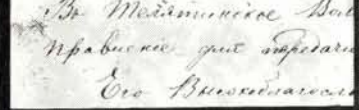 Въ Телятинское Вол
правление для передачи
Его Высокоблагосло